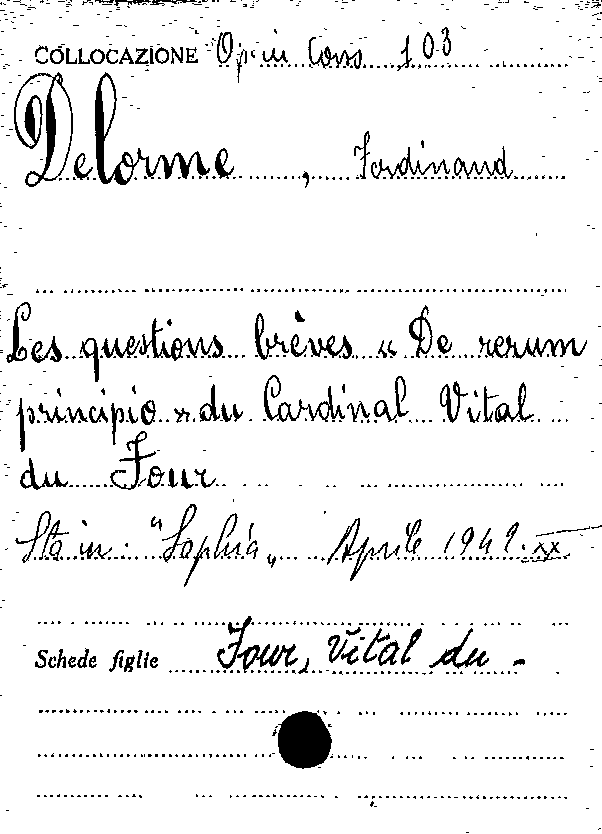 COLLOCAZIONE Op. in Cons 103
Delorme, Ferdinand
Les questions brèves « De rerum
principio » du Cardinal Vital
du Four
Sta in: "Sophia" Aprile 1949. xx
Schede figlie Four, Vital du -